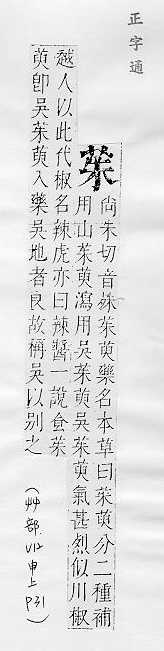 正字通
茱
尚朱切音殊茱萸藥名本草曰茱萸分二種補
用山茱萸瀉用吳茱萸吳茱萸氣甚烈似川椒
越人以此代椒名辣虎亦曰辣醬一說食茱
萸卽吳茱萸入藥吳地者良故稱吳以別之
(艸部 申上 P31)